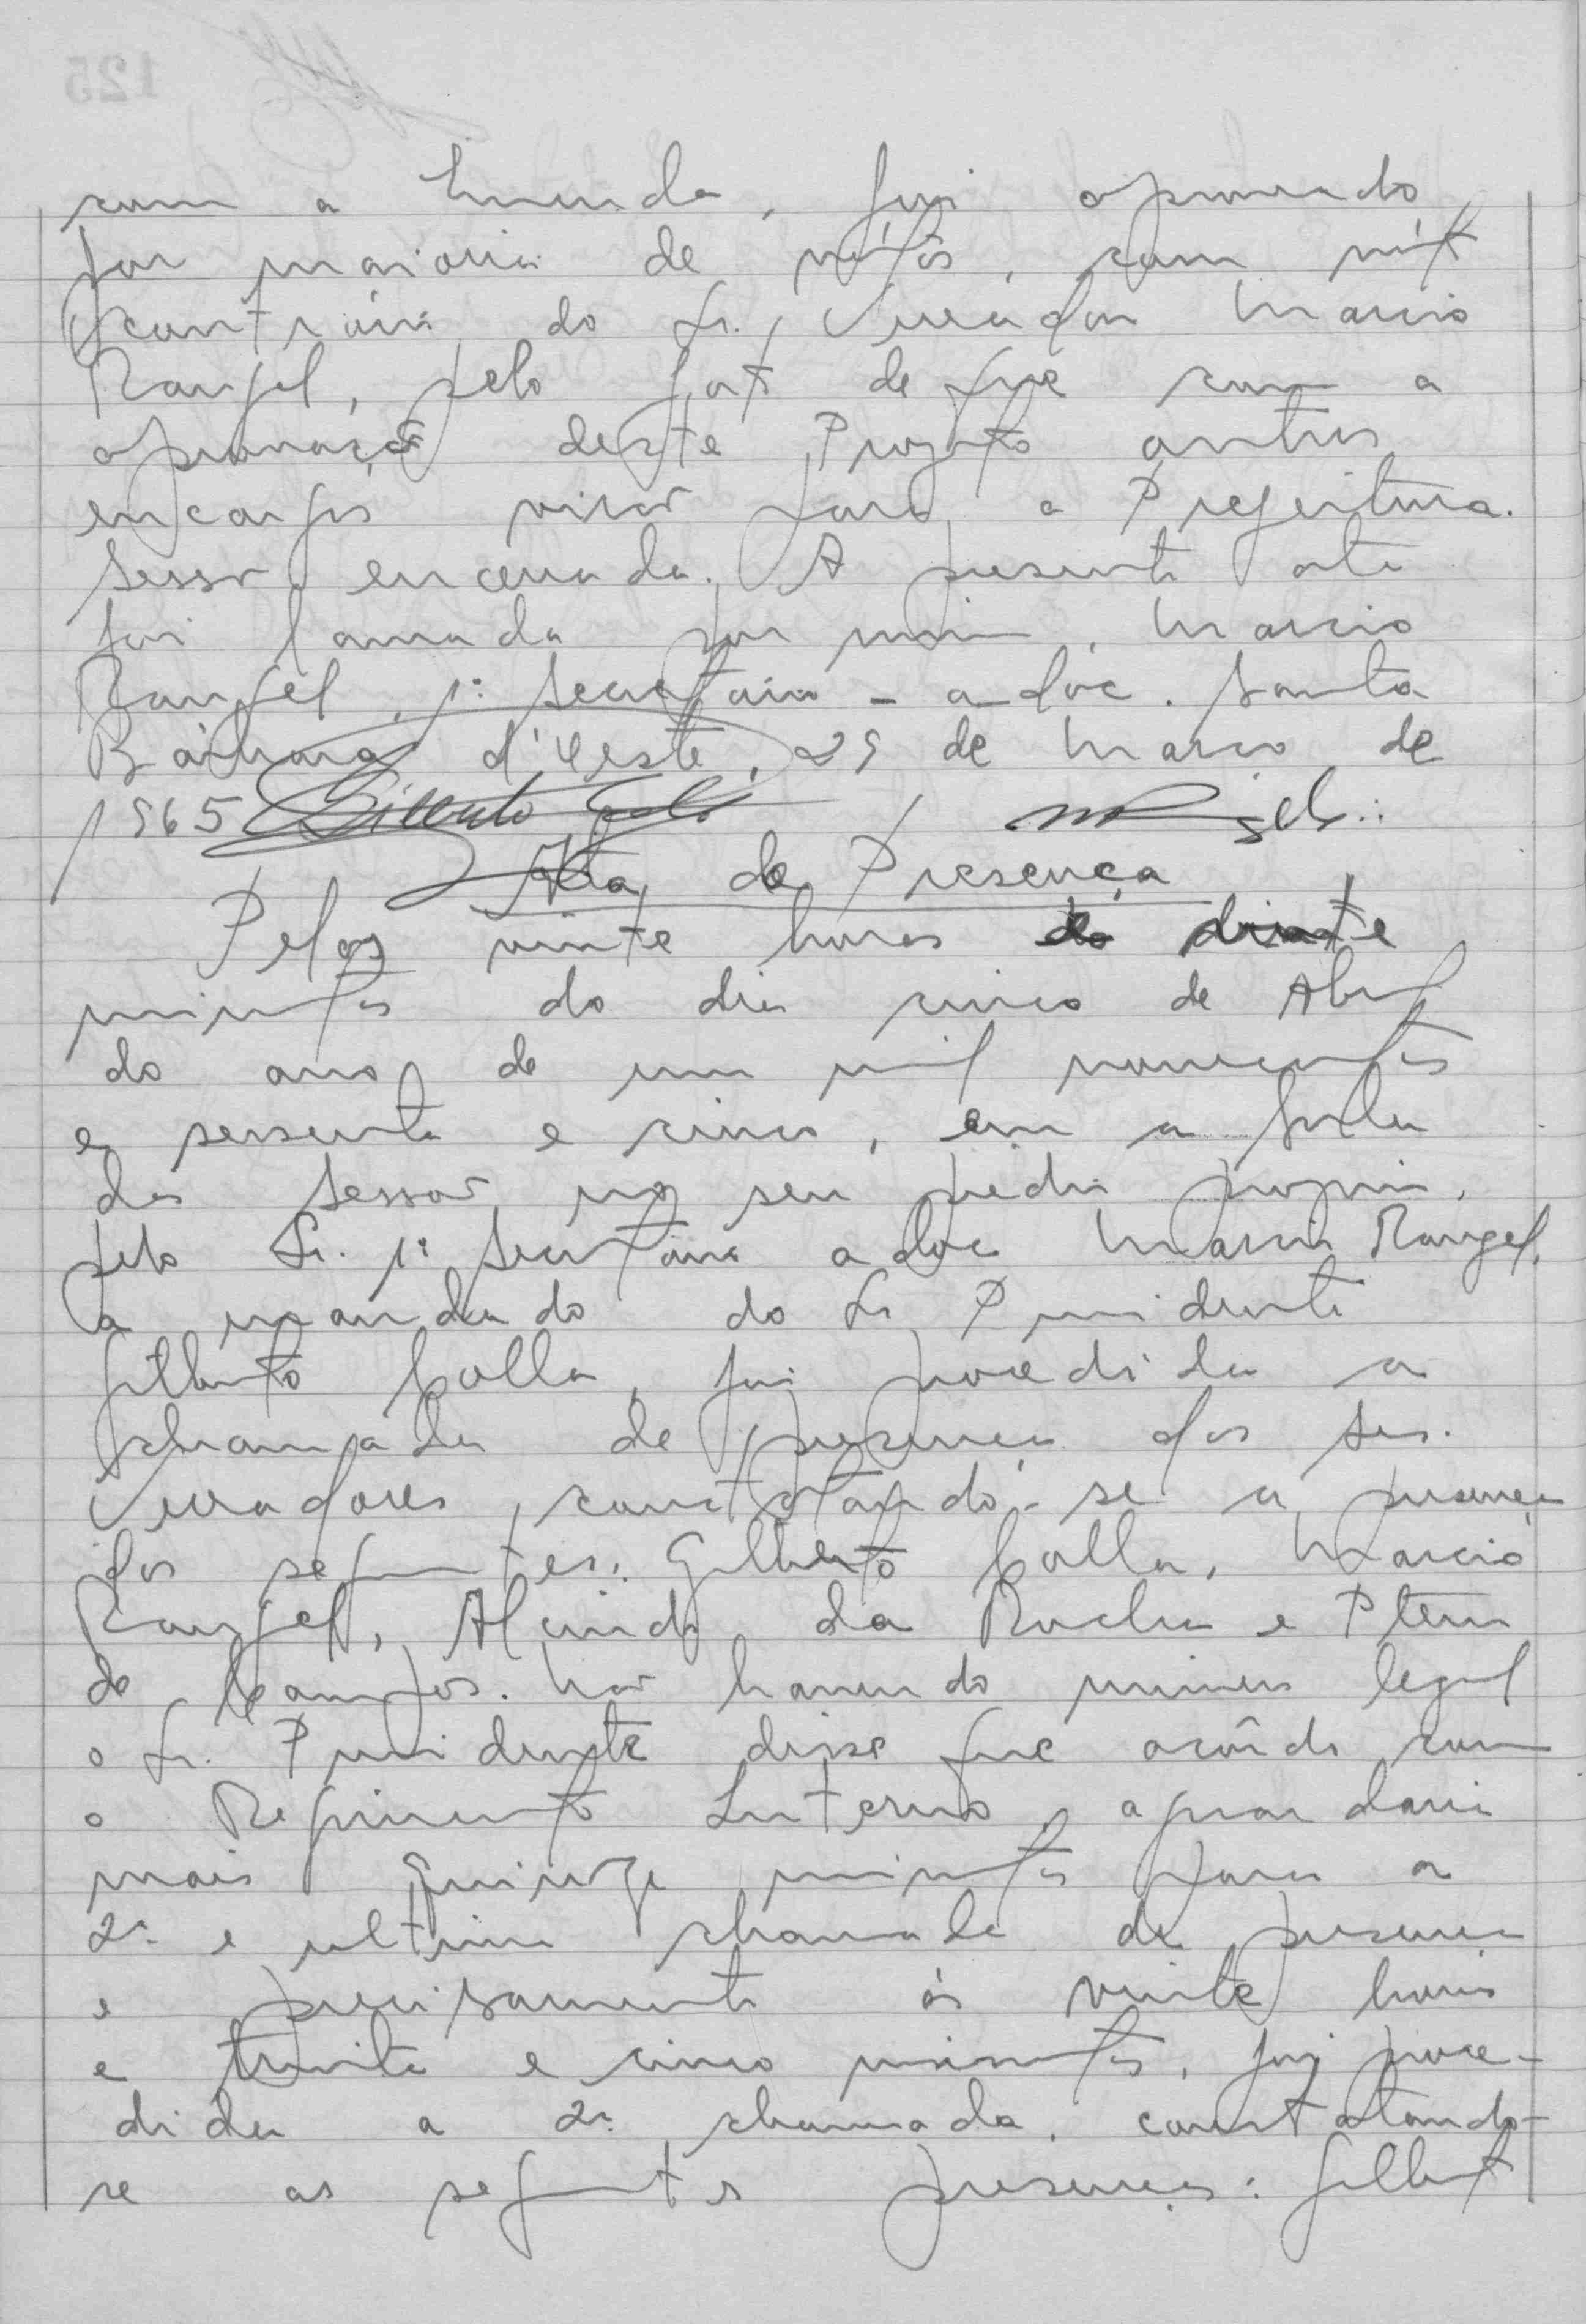 com a Emenda, foi aprovado
por maioria de vótos, com vóto
contrário do Sr. Vereador Marcio
Rangel, pelo fato de que com a
aprovação deste Projeto outros
encargos virão para a Prefeitura.
Sessão encerrada. A presente ata
foi lavrada por mim, Marcio
Rangel, 1º Secretário - adoc. Santa
Bárbara d'Oeste, 29 de Março de
1965 Gilberto Colla MRangel
Ata de Presença
Pelas vinte horas e vinte
minutos do dia cinco de Abril
do ano de um mil novecentos
e sessenta e cinco, em a Sala
das Sessões no seu predio proprio,
pelo Sr. 1º Secretário adoc Marcio Rangel,
a mandado do Sr. Presidente
Gilberto Colla, foi procedida a
chamada de presença dos Srs.
Vereadores, constatando-se a presença
dos seguintes: Gilberto Colla, Marcio
Rangel, Alcindo da Rocha e
de Campos. Não havendo número legal
o Sr. Presidente disse que acôrdo com
o Regimento Interno, aguardaria
mais quinze minutos para a
2ª e ultima chamada de presença
e precisamente ás vinte horas
e trinta e cinco minutos, foi proce-
dida a 2ª chamada, constatando-
se as seguintes presenças: Gilberto